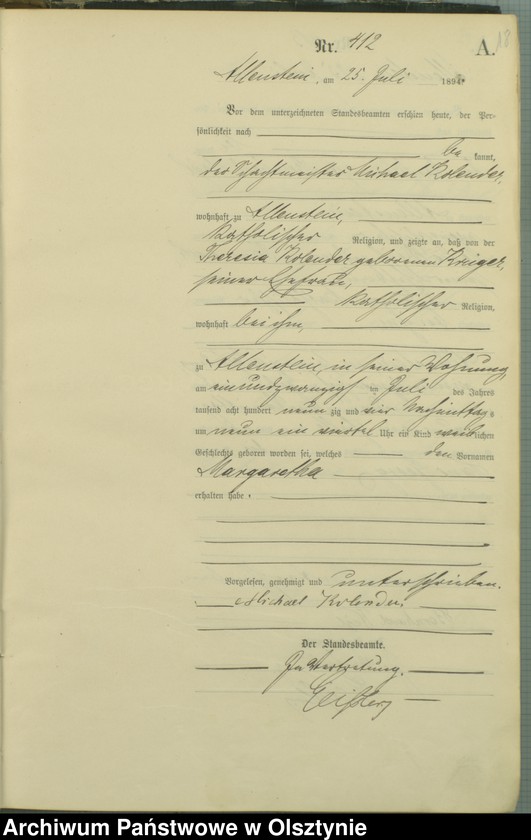 Nr. 412 A. 18
Allenstein, am 25. Juli 1894
Vor dem unterzeichneten Standesbeamten erschien heute, der Per-
sönlichkeit nach
be kannt,
der Schachtmeister Michael Kolender,
wohnhaft zu Allenstein,
katholischer Religion, und zeigte an, daß von der
Theresia Kolender geborenen Krüger,
seiner Ehefrau,
katholischer Religion,
wohnhaft bei ihm,
zu Allenstein, in seiner Wohnung
am einundzwanzigsten Juli des Jahres
tausend acht hundert neun zig und vier Nachmittags
um neun ein viertel Uhr ein Kind weiblichen
Geschlechts geboren worden sei, welches den Vornamen
Margaretha
erhalten habe.
Vorgelesen, genehmigt und unterschrieben.
Michael Kolender.
Der Standesbeamte.
In Vertretung.
Archiwum Państwowe w Olsztynie